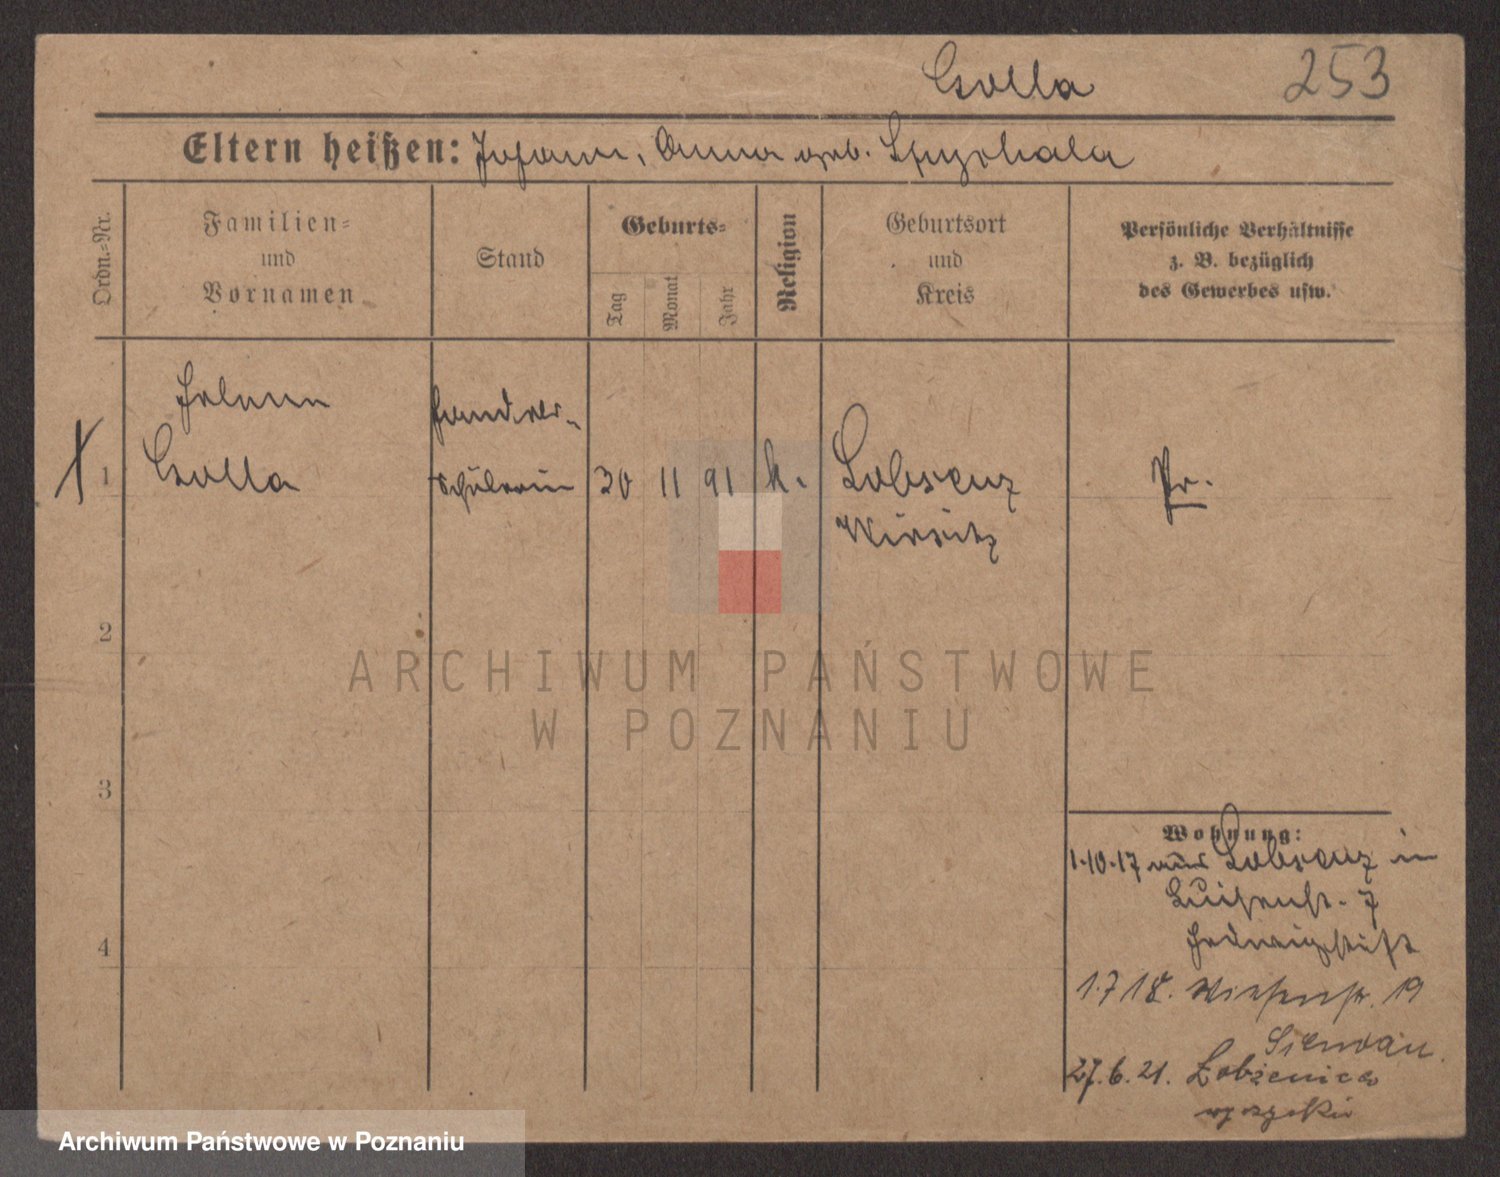 Golla
253
Eltern heißen: Johann, Anna geb. Spychala
Ordn.-Nr.
Familien-
und
Vornamen
Stand
Geburts-
Tag
Monat
Jahr
Religion
Geburtsort
und
Kreis
Persönliche Verhältnisse
z. B. bezüglich
des Gewerbes usw.
1
Helene
Golla
Handels-
schülerin
30
11
91
k.
Lobsenz
Wirsitz
Pr.
2
3
4
Wohnung:
1.10.17 aus Lobsenz in
Luisenstr. 7
Hedwigstift
1.7.18. Wiesenstr. 19
27.6.21. Łobżenica
wyrzyski
ARCHIWUM PAŃSTWOWE
W POZNANIU
Archiwum Państwowe w Poznaniu